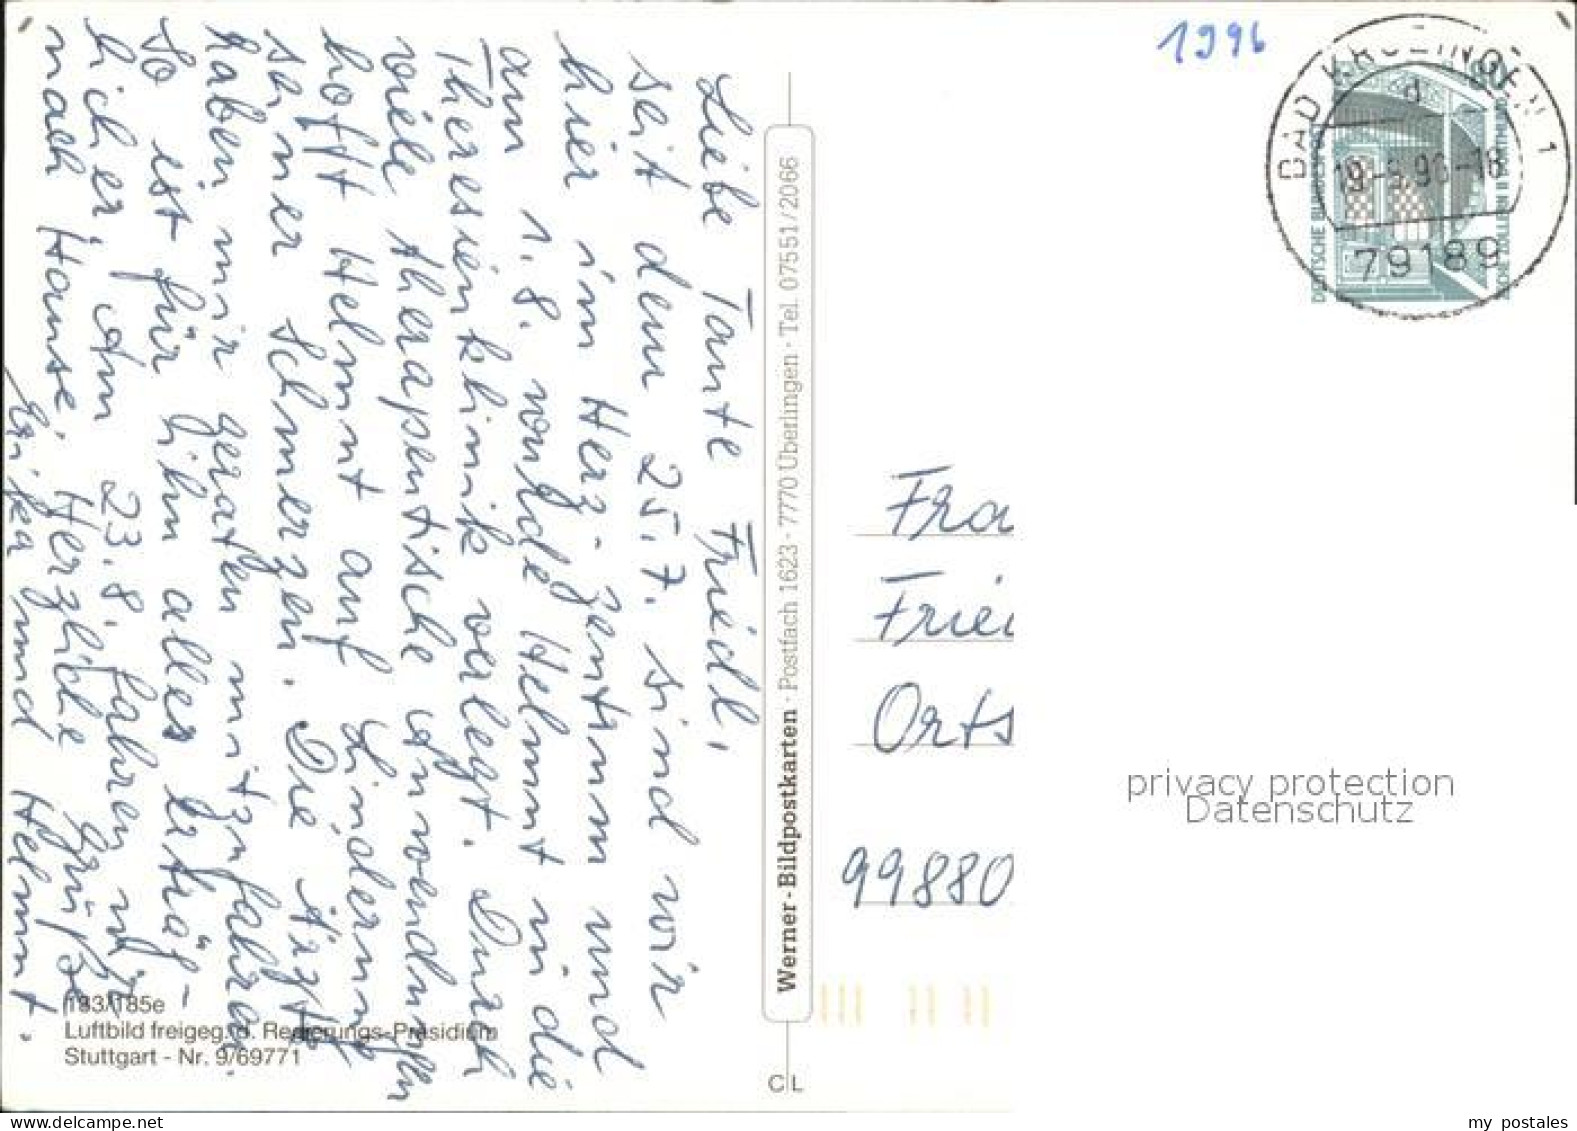 Liebe Tante Friedl,
seit dem 25.7. sind wir
hier im Herz-zentrum und
am 1.8. wurde Helmut in die
Theresienklinik verlegt. Durch
viele therapeutische Anwendungen
hofft Helmut auf Linderung
seiner Schmerzen. Die Ärzte
haben mir geraten mitzufahren.
So ist für ihn alles erträg-
licher. Am 23.8. fahren wir
nach Hause. Herzliche Grüße
Erika und Helmut.
183/185e
Luftbild freigeg. d. Regierungs-Präsidium
Stuttgart - Nr. 9/69771
Werner-Bildpostkarten · Postfach 1623 · 7770 Überlingen · Tel. 07551/2066
C L
1996
BAD KROZINGEN 1
d
79189
DEUTSCHE BUNDESPOST
80
ZECHE ZOLLERN II DORTMUND
Fra
Friei
Orts
99880
privacy protection
Datenschutz
www.delcampe.net
my postales